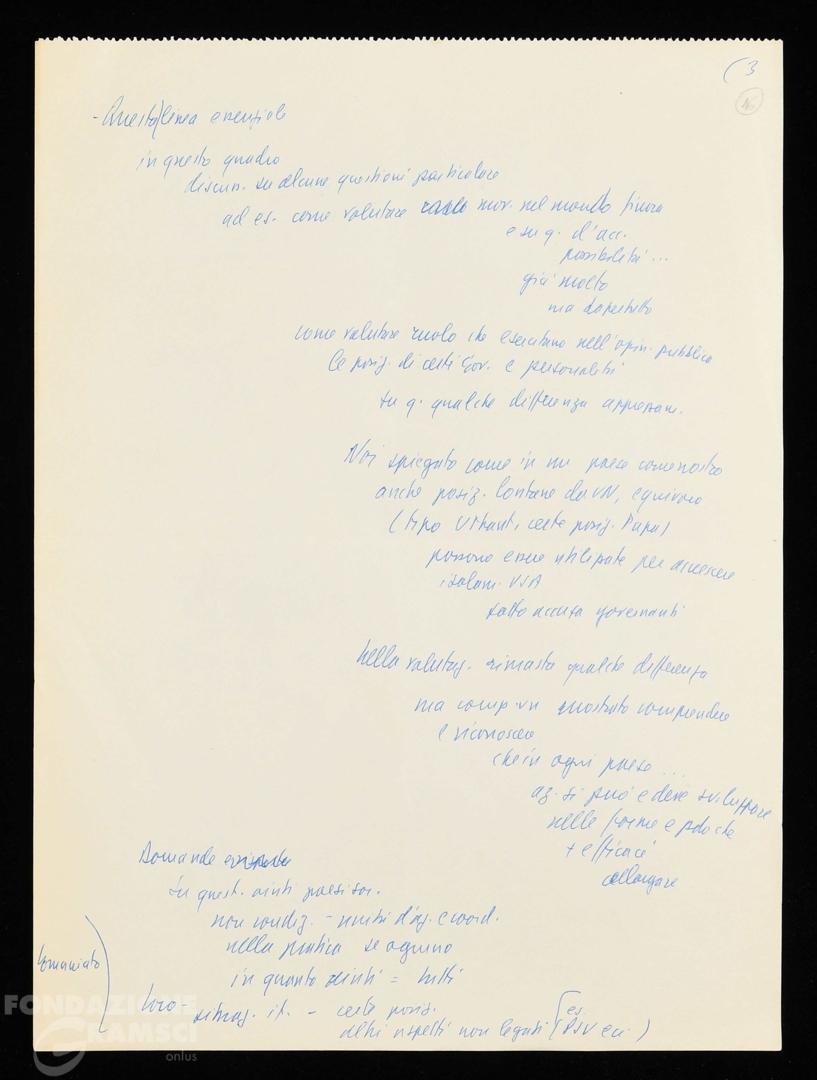 (3
- Questa linea essenziale
in questo quadro
discuss. su alcune questioni particolare
ad es. come valutare ruolo mov. nel mondo finora
e su q. d'acc.
possibilità ...
già molto
ma soprattutto
come valutare ruolo che esercitano nell'opin. pubblica
le posiz. di certi Gov. e personalità
su q. qualche differenza apprezzam.
Noi spiegato come in un paese come nostro
anche posiz. lontane da VN, equivoco
(tipo UThant, certe posiz. Papa)
possono essere utilizzate per accrescere
isolam. USA
sotto accusa governanti
Nella valutaz. rimasta qualche differenza
ma comp. vn mostrato comprendere
e riconoscere
che in ogni paese ...
az. si può e deve sviluppare
nelle forme e che
+ efficaci
allargare
Domande
su quest. aiuti paesi soc.
non condiz. - unità d'az. e coord.
nella pratica se ognuno
in quanto aiuti = tutti
Comunicato
Loro - situaz. it. - certe posiz.
altri aspetti non legati (es. PSU ecc.)
FONDAZIONE
GRAMSCI
onlus